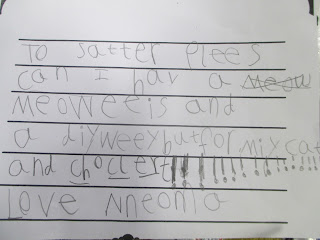 To Satter Plees
can I hav a
Meoweeis and
a diyweeyhutfor miy cat
and choclert!!!!!!!!!!!!!!!
Love Nneonia